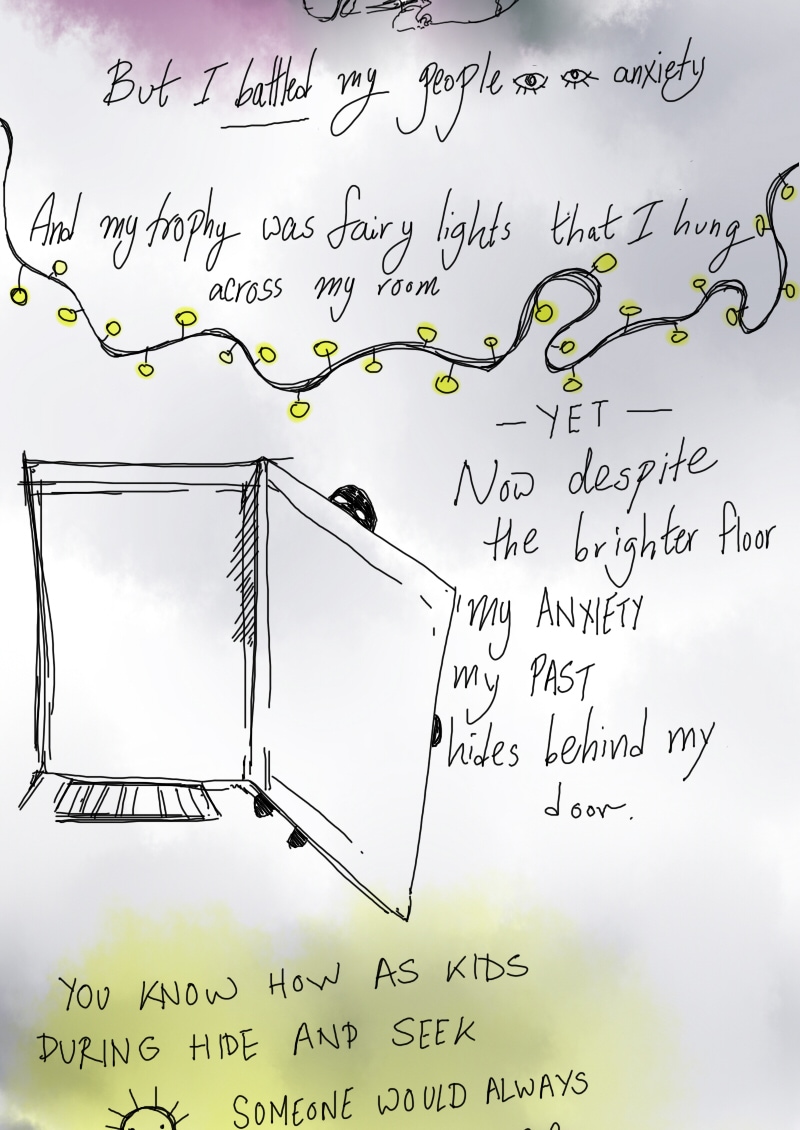 But I battled my people anxiety
And my trophy was fairy lights that I hung
across my room
— YET —
Now despite
the brighter floor
my ANXIETY
my PAST
hides behind my
door.
YOU KNOW HOW AS KIDS
DURING HIDE AND SEEK
SOMEONE WOULD ALWAYS